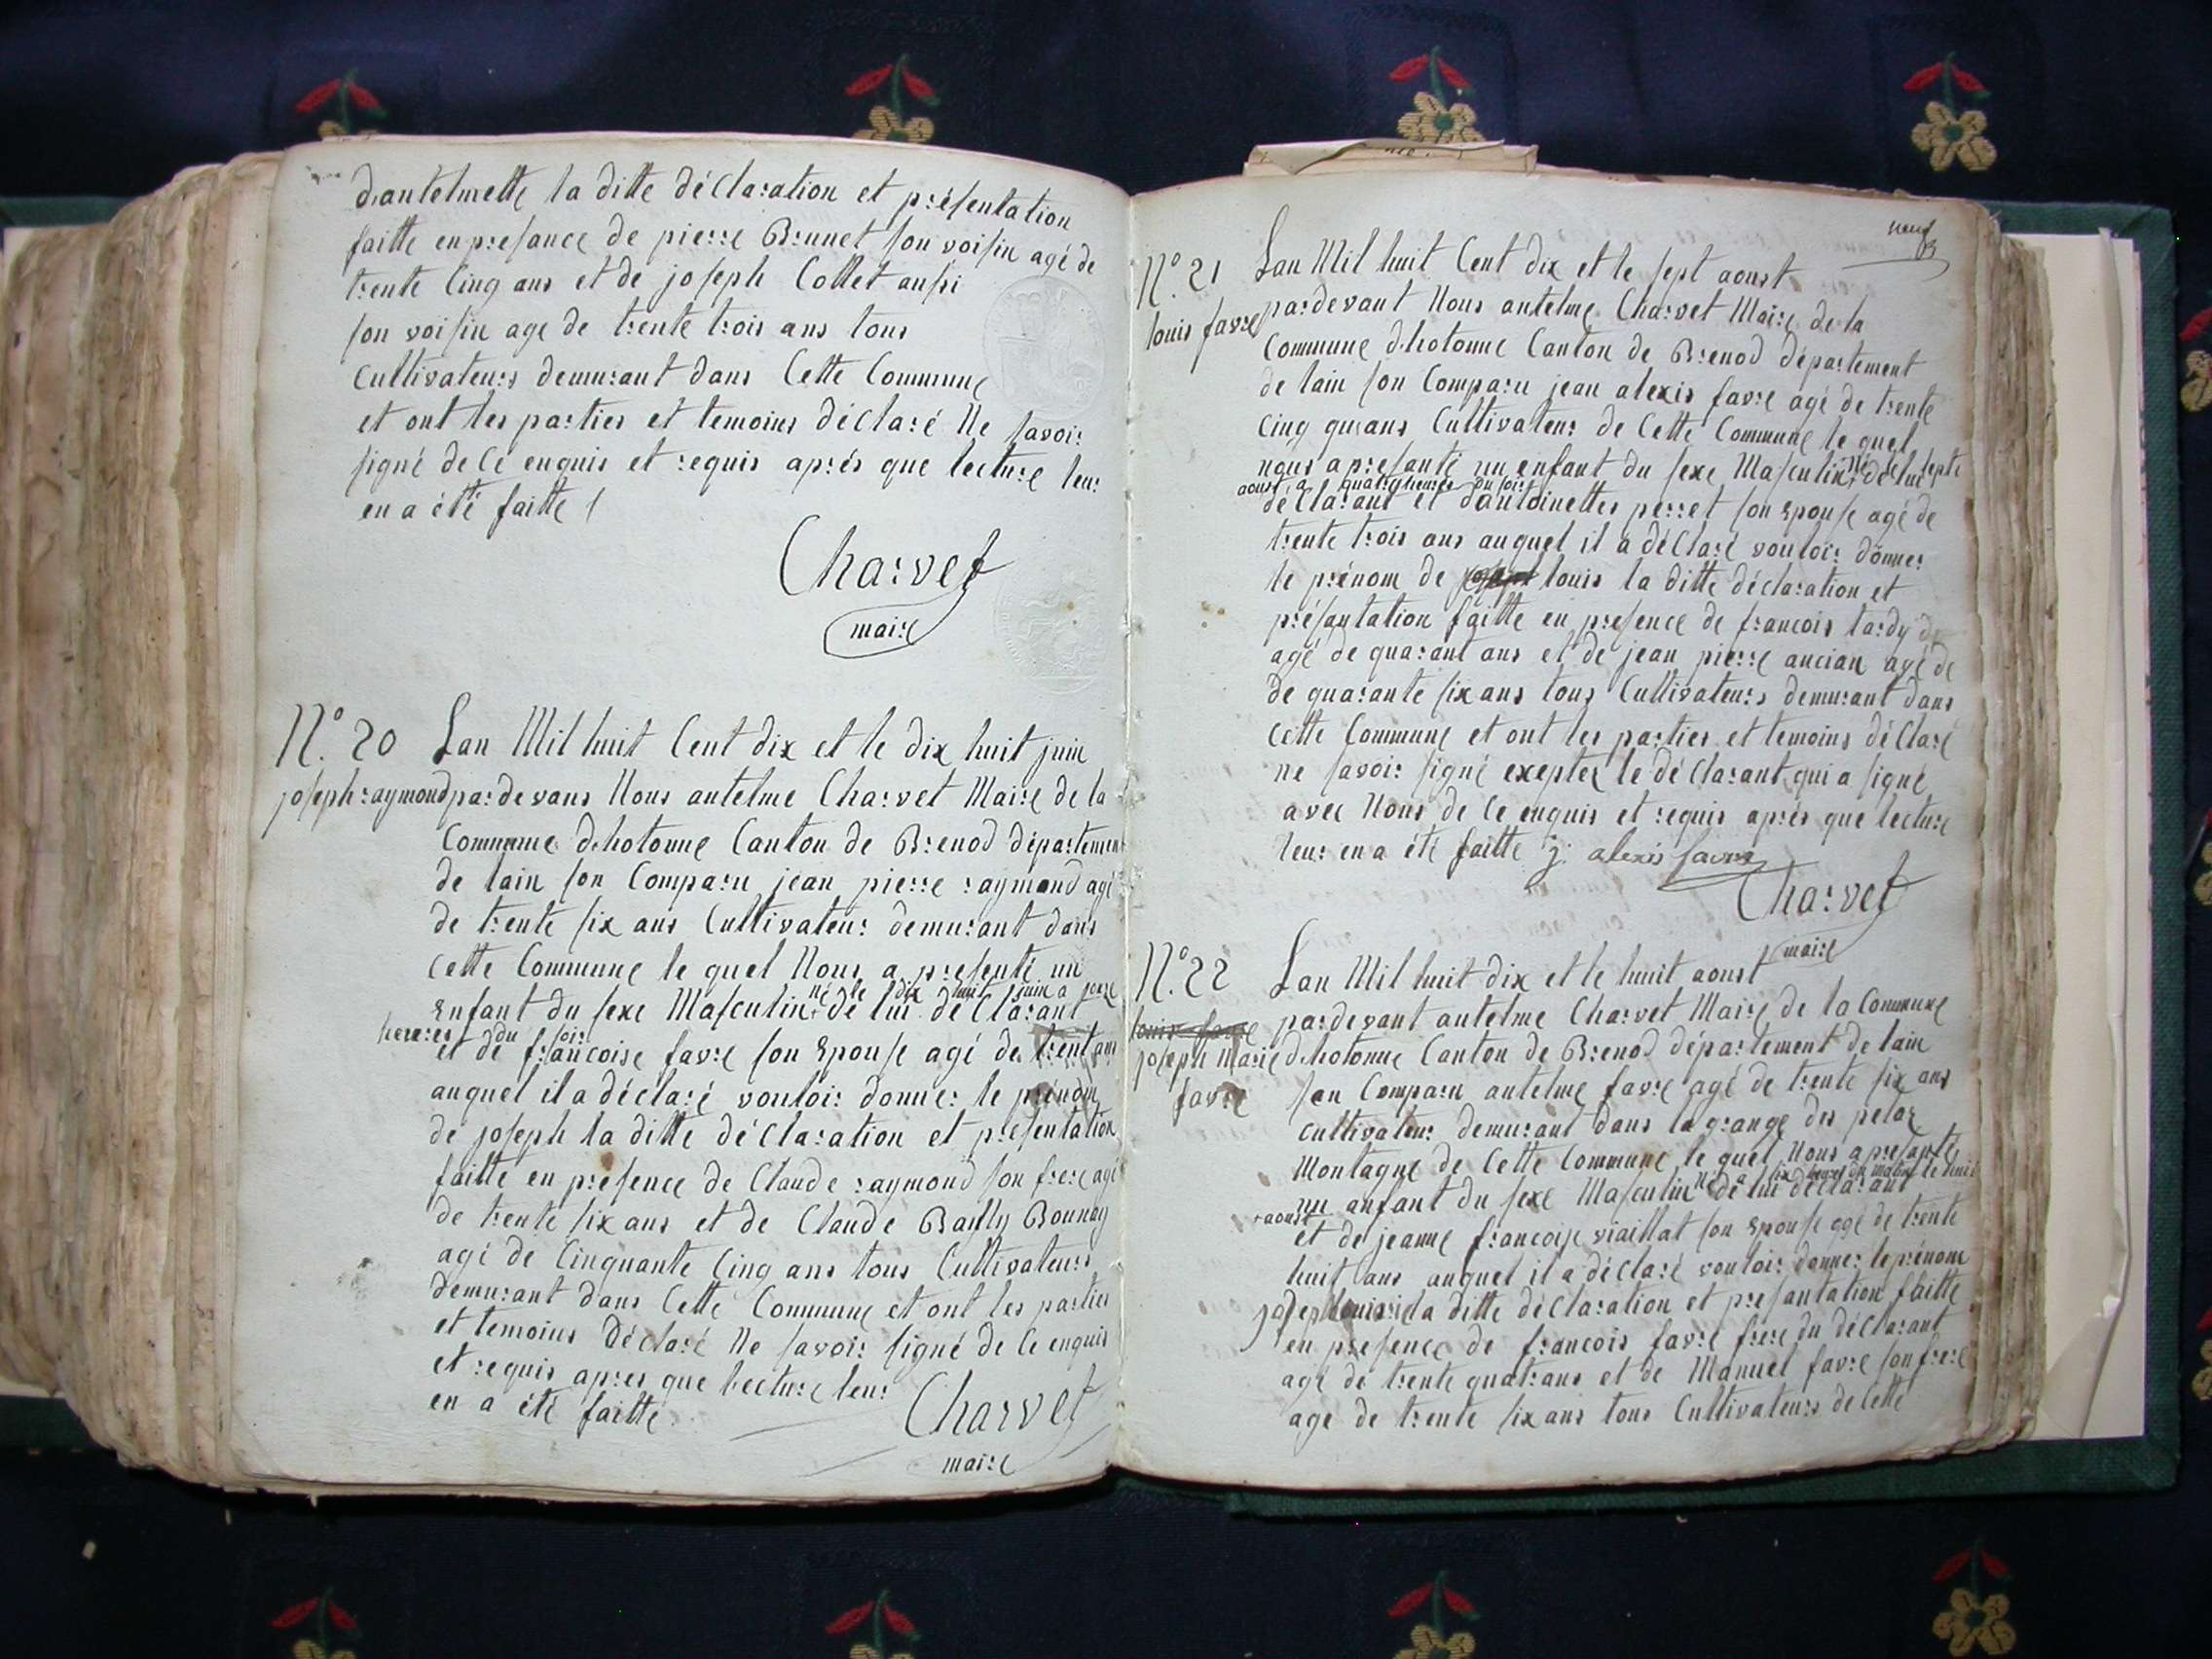 d.antelmette la ditte déclaration et présentation
faitte en presance de pierre Brunet son voisin agé de
trente Cinq ans et de joseph Collet aussi
son voisin age de trente trois ans tous
Cultivateurs demurant dans Cette Commune
et ont les parties et temoins déclaré Ne savoir
signé de Ce enquis et requis aprés que lecture leur
en a été faitte /
Charvet
maire
N.º 20
joseph raymond
Lan Mil huit Cent dix et le dix huit juin
pardevans Nous antelme Charvet Maire de la
Commune d.hotonne Canton de Brenod département
de lain son Comparu jean pierre raymond agé
de trente six ans Cultivateur demurant dans
Cette Commune le quel Nous a presenté un
né le dix huit juin a
Enfant du sexe Masculin de lui déClarant
heures du soir
et de francoise favre son Epouse agé de trent ans
auquel il a déclaré vouloir donner le prénom
de joseph la ditte déClaration et presentation
faitte en présence de Claude raymond son frere agé
de trente six ans et de Claude Bailly Bounay
agé de Cinquante Cinq ans tous Cultivateurs
demurant dans Cette Commune et ont les parties
et temoins Déclaré Ne savoir signé de Ce enquis
et requis apres que lecture leur
en a été faitte
Charvet
maire
neuf
N.º 21
louis favre
Lan Mil huit Cent dix et le sept aoust
pardevant Nous antelme Charvet Maire de la
Commune d.hotonne Canton de Brenod département
de lain son Comparu jean alexis favre agé de trente
Cinq ans Cultivateur de Cette Commune le quel
nous a presanté un enfant du sexe Masculin né de lui le sept
aoust a quatre heures du soir
déClarant et dantoinettes perret son Epouse agé de
trente trois ans auquel il a déClaré vouloir donner
le prénom de louis la ditte déclaration et
présantation faitte en presence de francois tardy de
agé de quarant ans et de jean pierre ancian agé de
de quarante six ans tous Cultivateurs demurant dans
Cette Commune et ont les parties et temoins déClaré
ne savoir signé exepter le déClarant qui a signé
avec Nous de Ce enquis et requis aprés que lecture
leur en a été faitte j. alexis favre
Charvet
maire
N.º 22
louis favre
joseph Marie
favre
Lan Mil huit dix et le huit aoust
pardevant antelme Charvet Maire de la Commune
d.hotonne Canton de Brenod département de lain
son Comparu antelme favre agé de trente six ans
Cultivateur demurant dans la grange des pelaz
Montagne de Cette Commune le quel Nous a presanté
né a six heures du matin le huit
un anfant du sexe Masculin de lui déClarant
aoust
et de jeanne francoise viaillat son Epouse agé de trente
huit ans auquel il a déclaré vouloir donner le prénom
joseph la ditte déClaration et presantation faitte
en presence de francois favre frere du déclarant
agé de trente quatrans et de Manuel favre son frere
age de trente six ans tous Cultivateurs de Cette